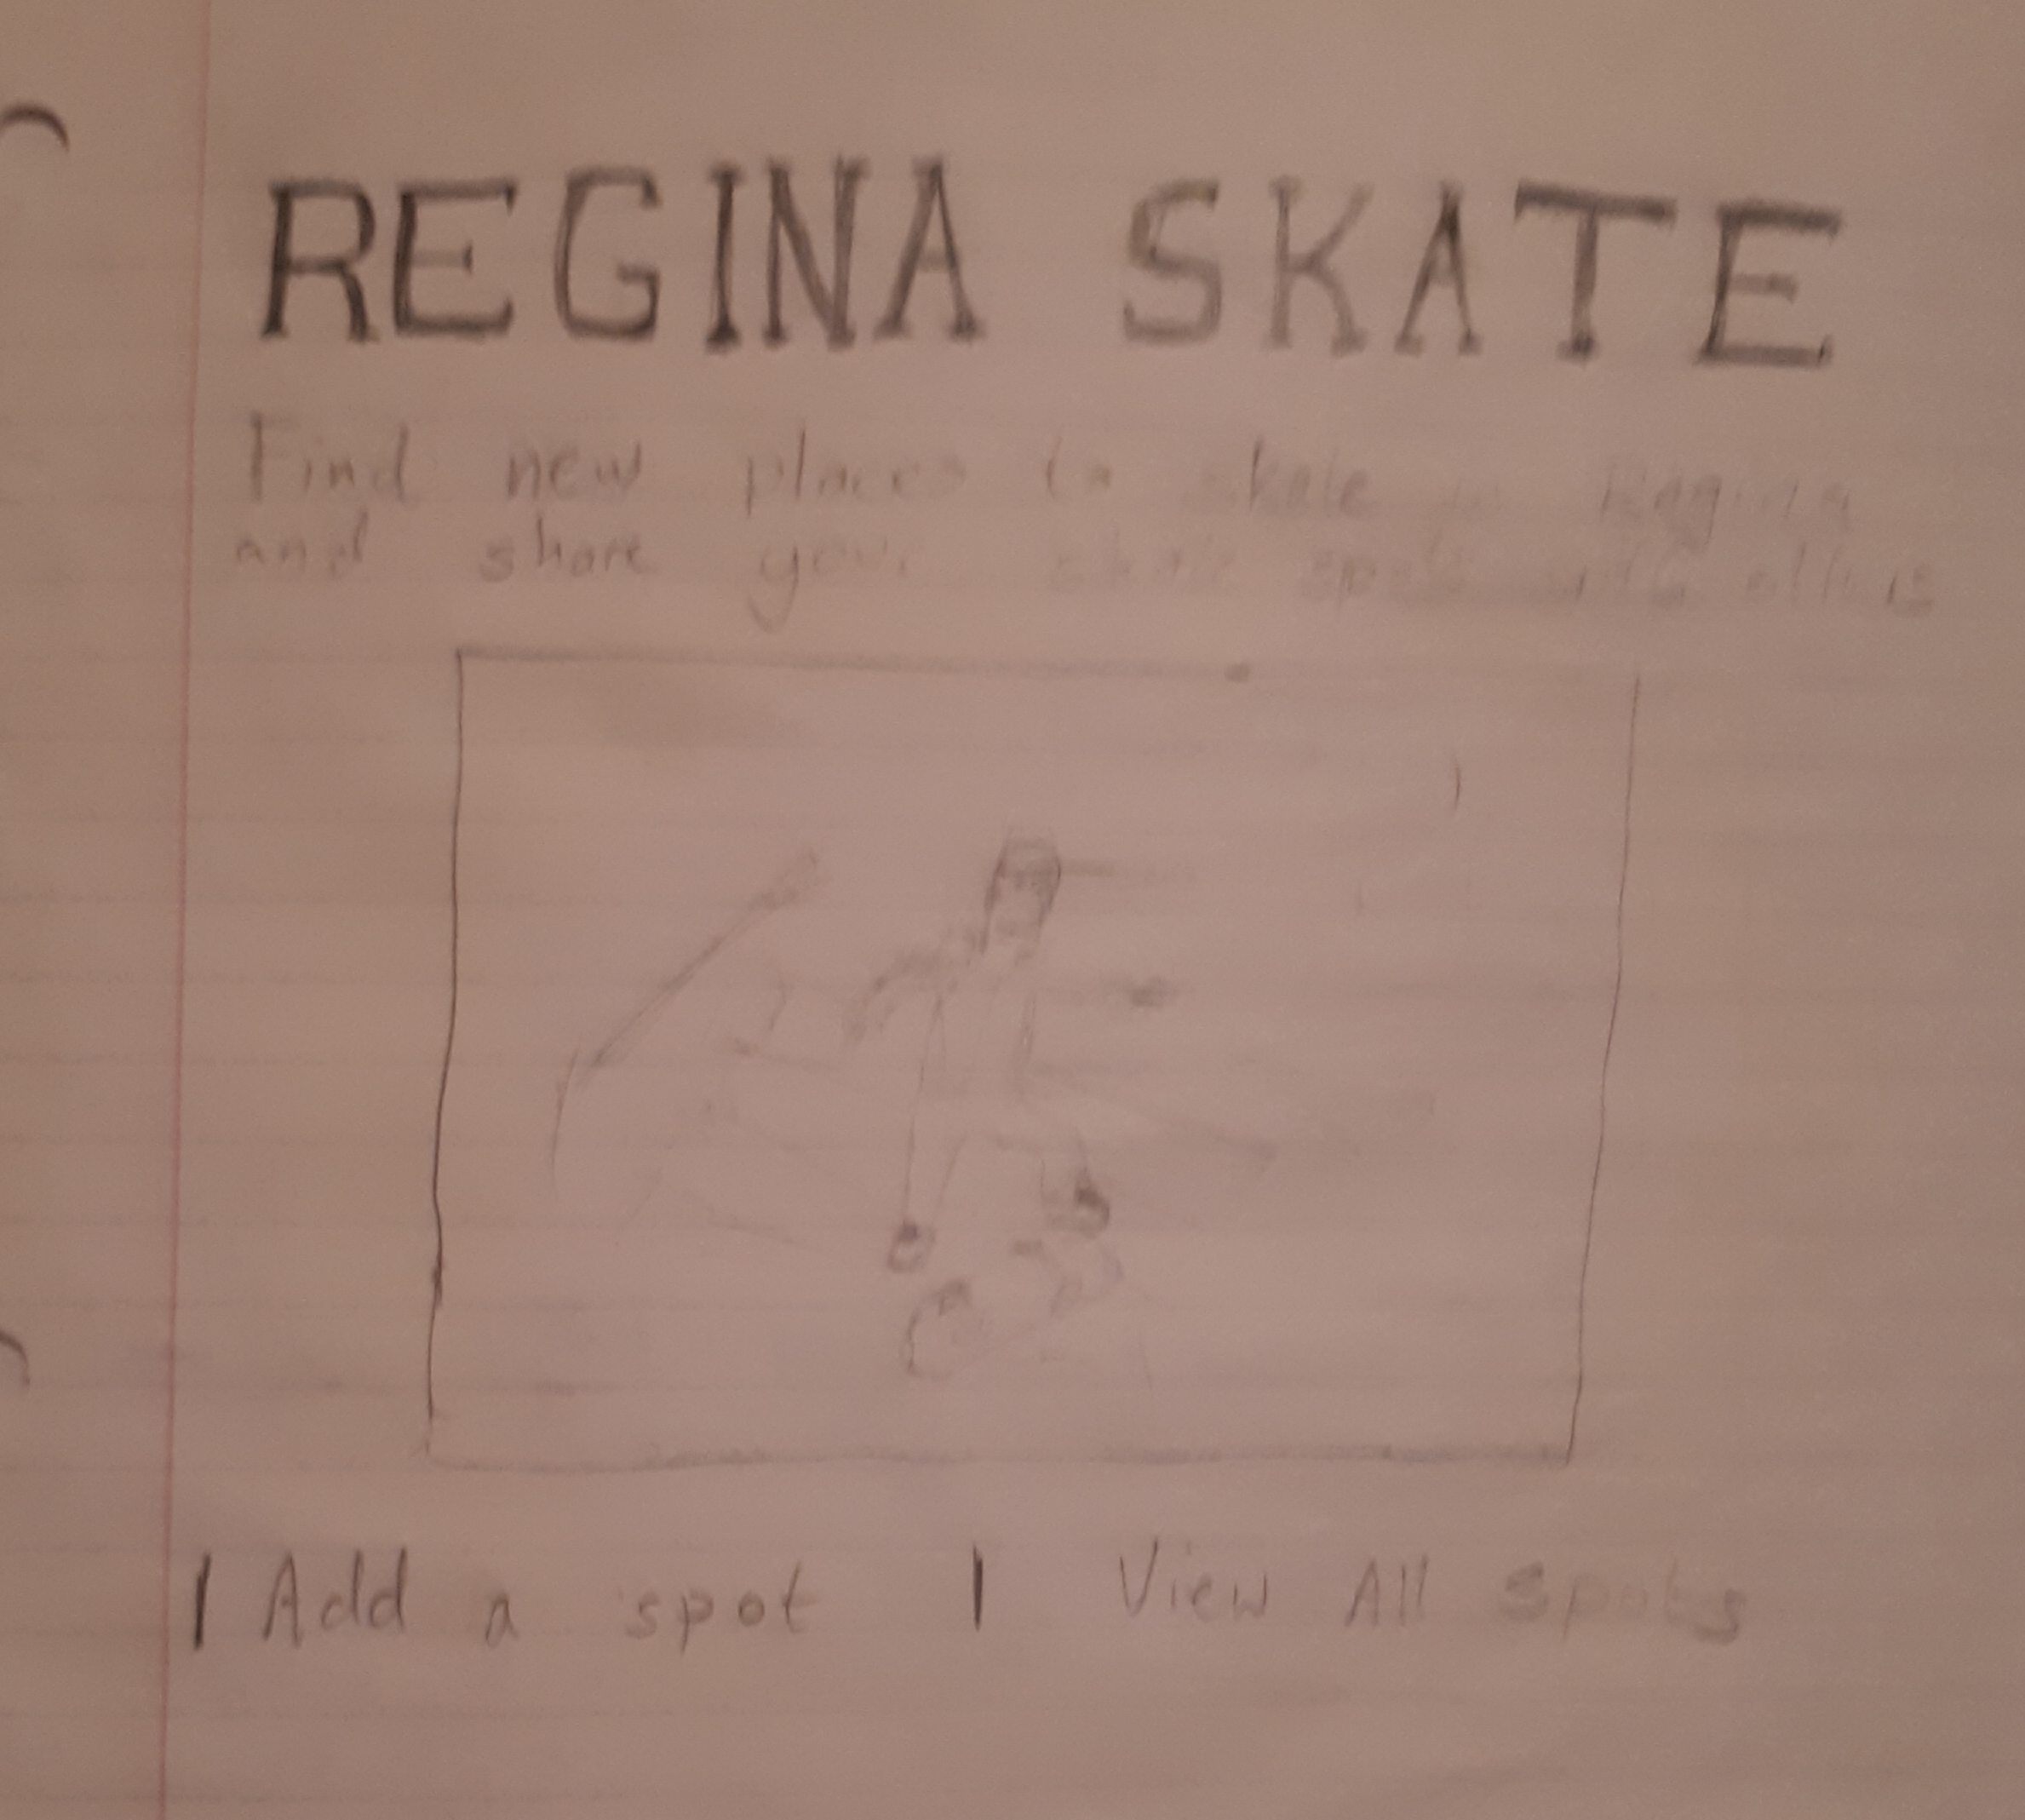 REGINA SKATE
Find new places to skate in Regina
and share your skate spots with others
| Add a spot | View All spots